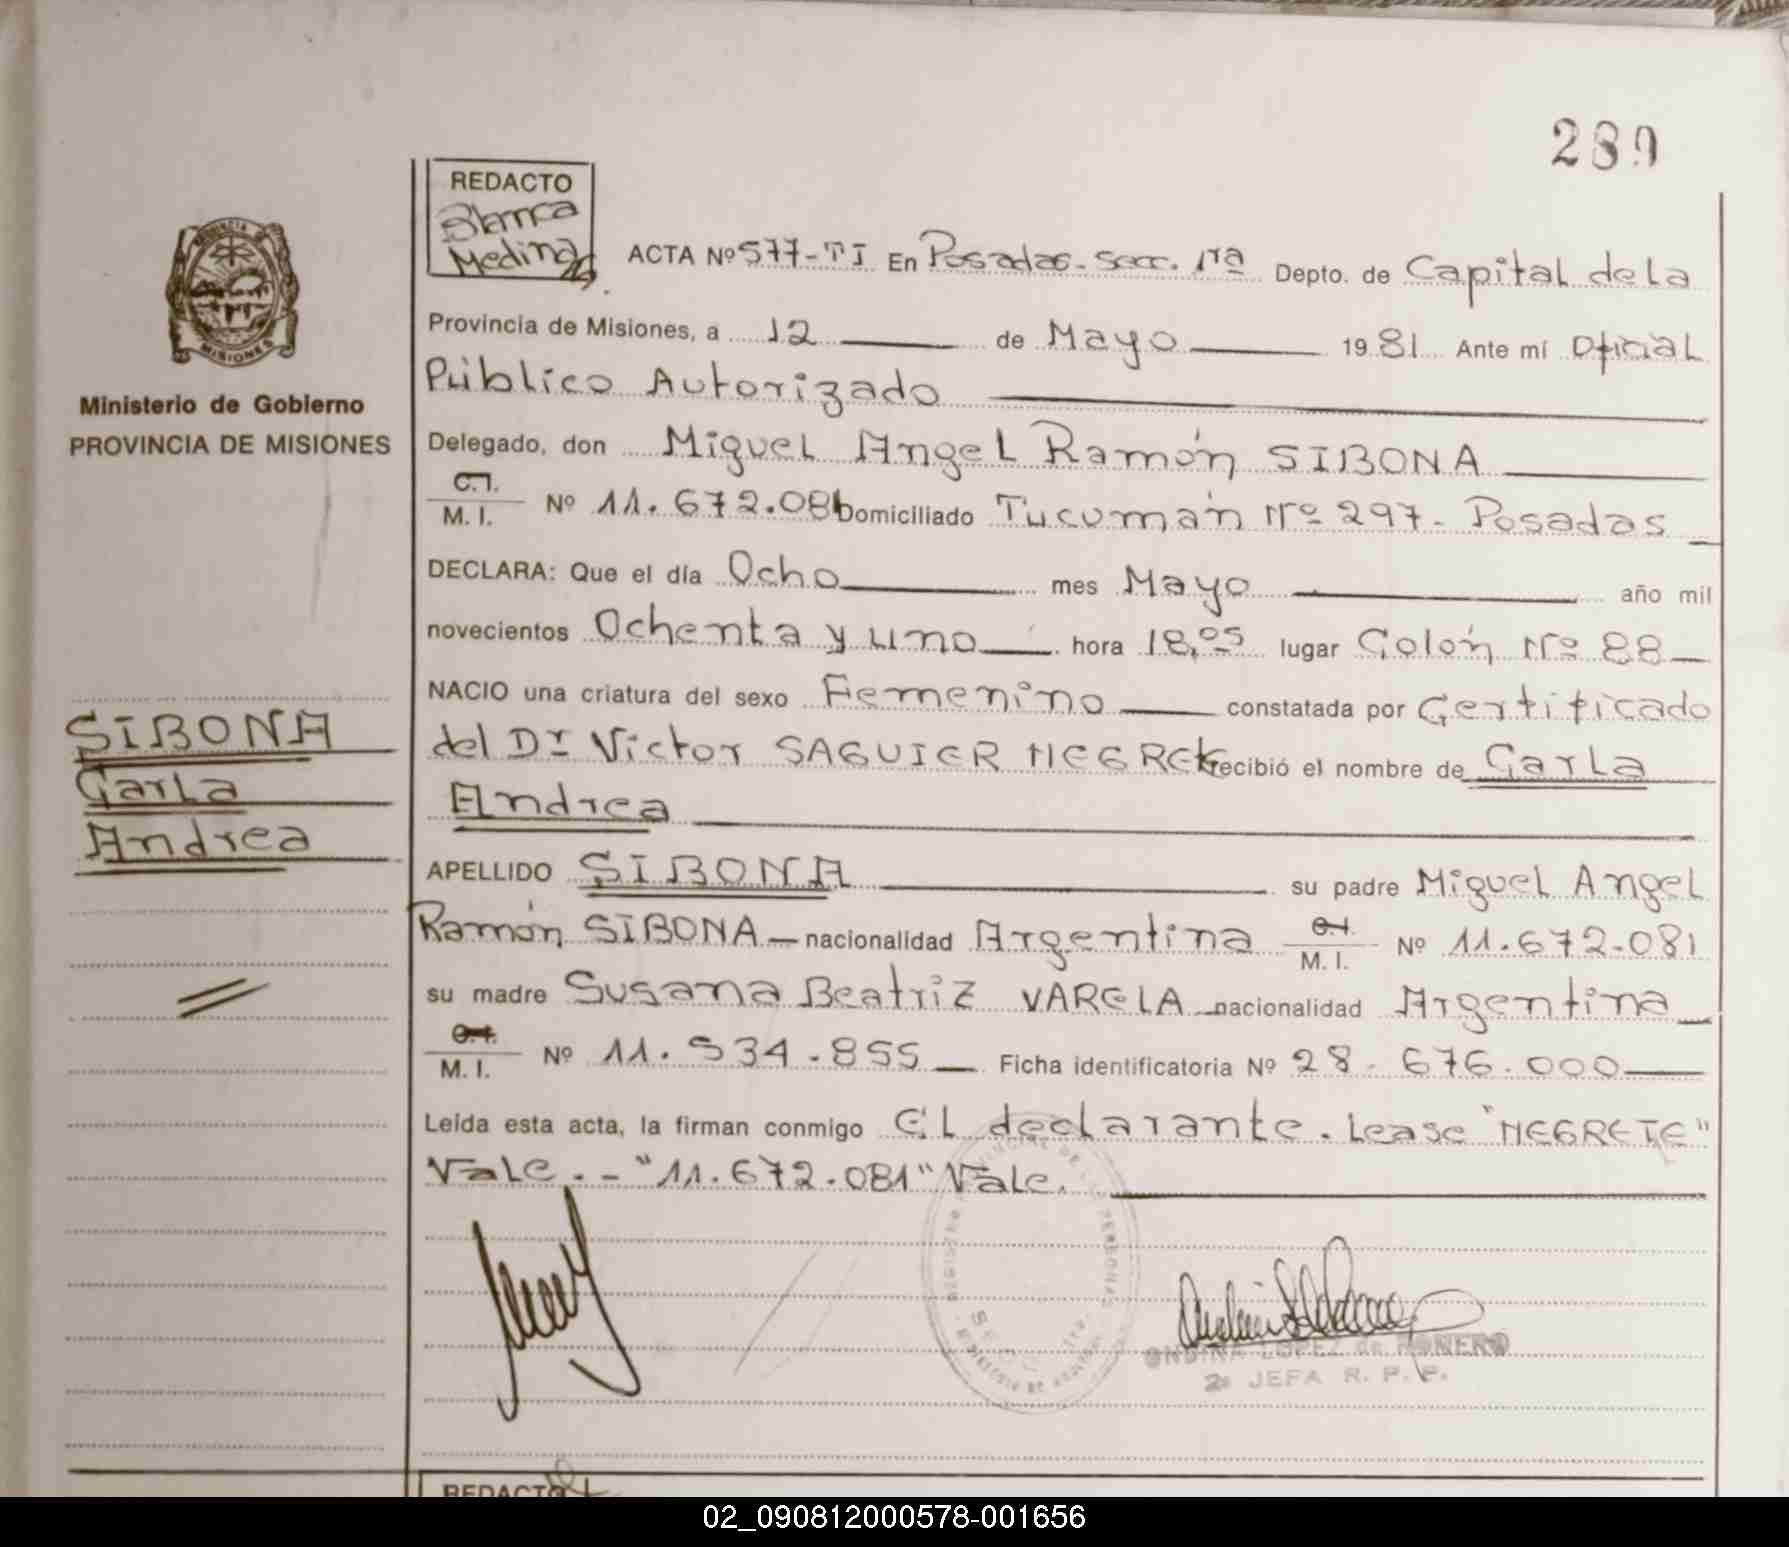 289
REDACTO
Blanca
Medina
ACTA Nº 577-TI En Posadas-Secc. 1ra Depto. de Capital de La
Provincia de Misiones, a 12 de Mayo 1981 Ante mí Oficial
Público Autorizado
Delegado, don Miguel Angel Ramón SIBONA
C.I.
M. I. Nº 11.672.081 Domiciliado Tucumán Nº 297- Posadas
DECLARA: Que el día Ocho mes Mayo año mil
novecientos Ochenta y uno hora 18,05 lugar Colón Nº 88
NACIO una criatura del sexo Femenino constatada por Certificado
del Dr Victor SAGUIER NEGRETE recibió el nombre de Carla
Andrea
APELLIDO SIBONA su padre Miguel Angel
Ramón SIBONA nacionalidad Argentina C.I.
M. I. Nº 11.672.081
su madre Susana Beatriz VARELA nacionalidad Argentina
C.I.
M. I. Nº 11.534.855 Ficha identificatoria Nº 28.676.000
Leída esta acta, la firman conmigo EL declarante. Lease "NEGRETE"
Vale.- "11.672.081" Vale.
ONDINA LOPEZ de ROMERO
2a JEFA R. P. P.
MISIONES
Ministerio de Gobierno
PROVINCIA DE MISIONES
SIBONA
Carla
Andrea
REDACTO
02_090812000578-001656